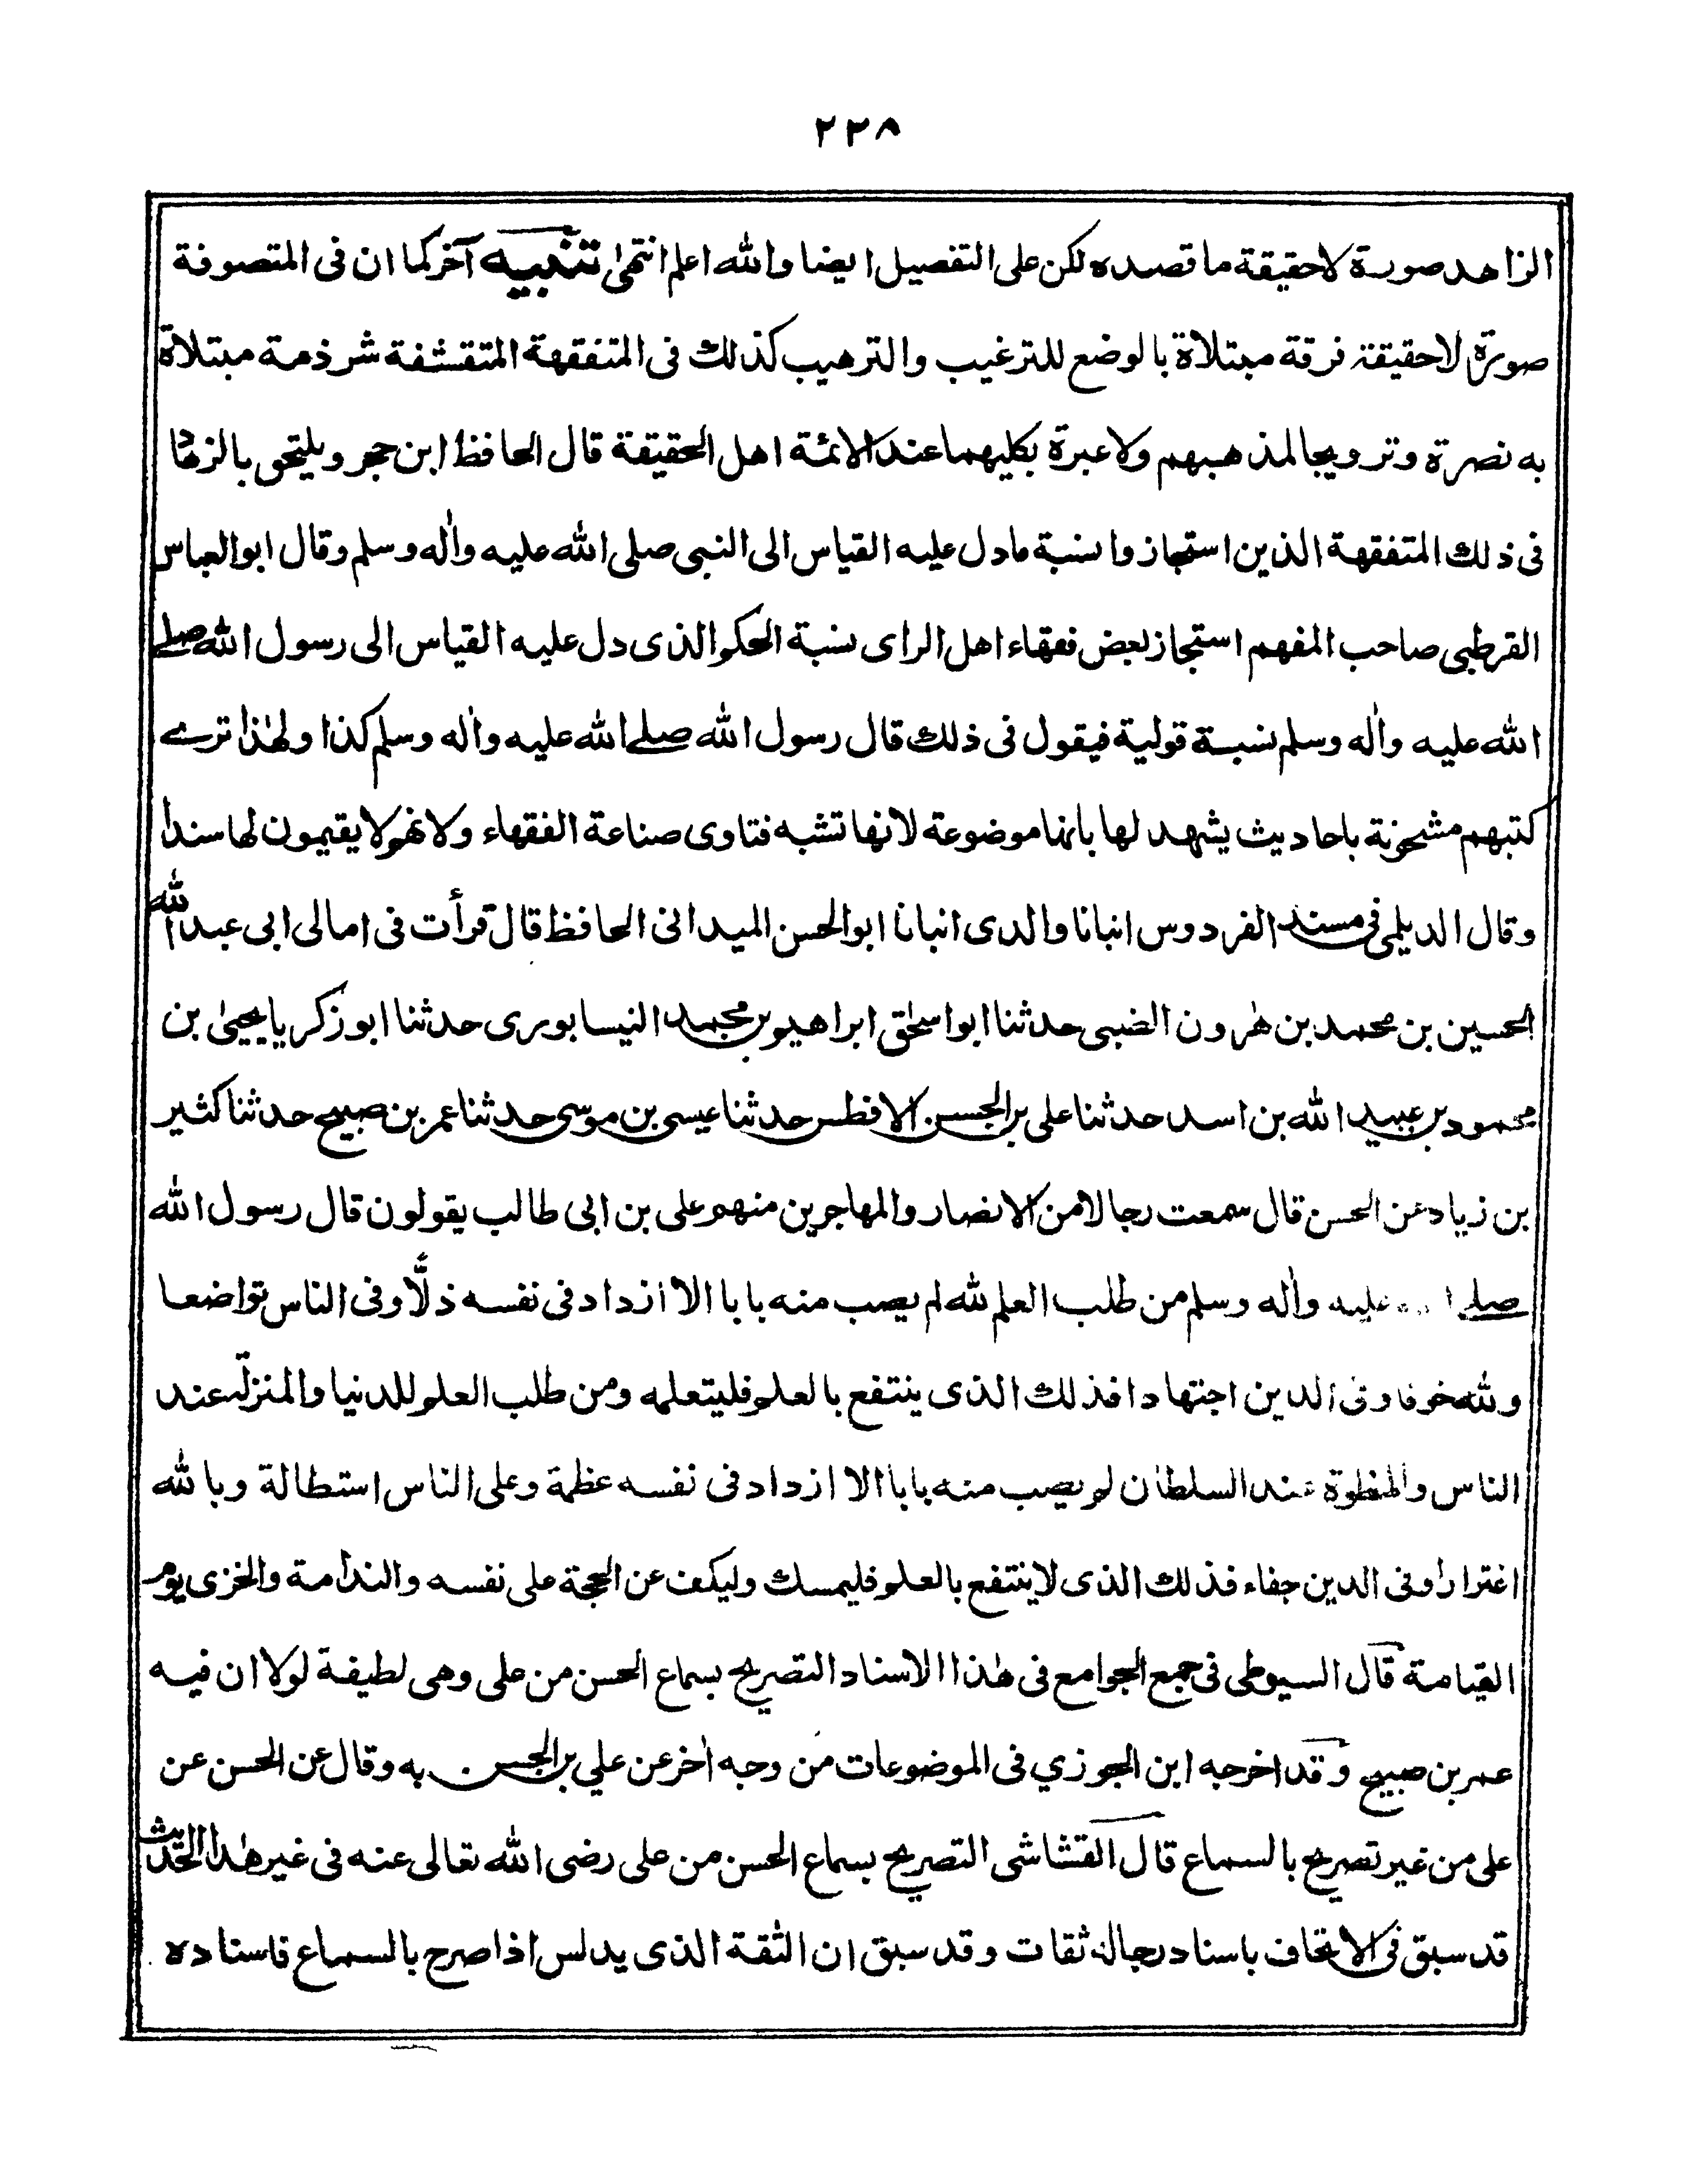 ۲۲۸
الزاهد صورة لا حقيقة ما قصده لكن على التفصيل ايضا والله اعلم انتهىٰ تنبيه آخر كما ان فى المتصوفة
صورة لا حقيقة فرقة مبتلاة بالوضع للترغيب والترهيب كذلك فى المتفقهة المتقشفة شرذمة مبتلاة
به نصرة وترويجا لمذهبهم ولا عبرة بكليهما عند الائمة اهل الحقيقة قال الحافظ ابن حجر ويلتحق بالزهاد
فى ذلك المتفقهة الذين استجازوا نسبة مادل عليه القياس الى النبى صلى الله عليه واٰله وسلم وقال ابو العباس
القرطبى صاحب المفهم استجاز بعض فقهاء اهل الراى نسبة الحكم الذى دل عليه القياس الى رسول الله صلے
الله عليه واٰله وسلم نسبة قولية فيقول فى ذلك قال رسول الله صلے الله عليه واٰله وسلم كذا ولهٰذا ترے
كتبهم مشحونة باحاديث يشهد لها بانها موضوعة لانها تشبه فتاوى صناعة الفقهاء ولانهم لا يقيمون لها سندا
وقال الديلمى فى مسند الفردوس انبانا والدى انبانا ابو الحسن الميدانى الحافظ قال قرأت فى امالى ابى عبد الله
الحسين بن محمد بن هٰرون الضبى حدثنا ابو اسحٰق ابراهيم بن محمد النيسابورى حدثنا ابو زكريا يحيىٰ بن
محمود بن عبيد الله بن اسد حدثنا على بن الحسن الافطس حدثنا عيسى بن موسى حدثنا عمر بن صبيح حدثنا كثير
بن زياد عن الحسن قال سمعت رجالا من الانصار والمهاجرين منهم على بن ابى طالب يقولون قال رسول الله
صلے عليه واٰله وسلم من طلب العلم لله لم يصب منه بابا الا ازداد فى نفسه ذلًّا وفى الناس تواضعا
ولله خوفا وفى الدين اجتهادا فذلك الذى ينتفع بالعلم فليتعلمه ومن طلب العلم للدنيا والمنزلة عند
الناس والحظوة عند السلطان لم يصب منه بابا الا ازداد فى نفسه عظمة وعلى الناس استطالة وبالله
اغترارا وفى الدين جفاء فذلك الذى لا ينتفع بالعلم فليمسك وليكف عن الحجة على نفسه والندامة والخزى يوم
القيامة قال السيوطى فى جمع الجوامع فى هٰذا الاسناد التصريح بسماع الحسن من على وهى لطيفة لولا ان فيه
عمر بن صبيح وقد اخرجه ابن الجوزي فى الموضوعات من وجه اٰخر عن علي بن الحسن به وقال عن الحسن عن
على من غير تصريح بالسماع قال القشاشى التصريح بسماع الحسن من على رضى الله تعالى عنه فى غير هٰذا الحديث
قد سبق فى الاتحاف باسناد رجاله ثقات وقد سبق ان الثقة الذى يدلس اذا صرح بالسماع فاسناده